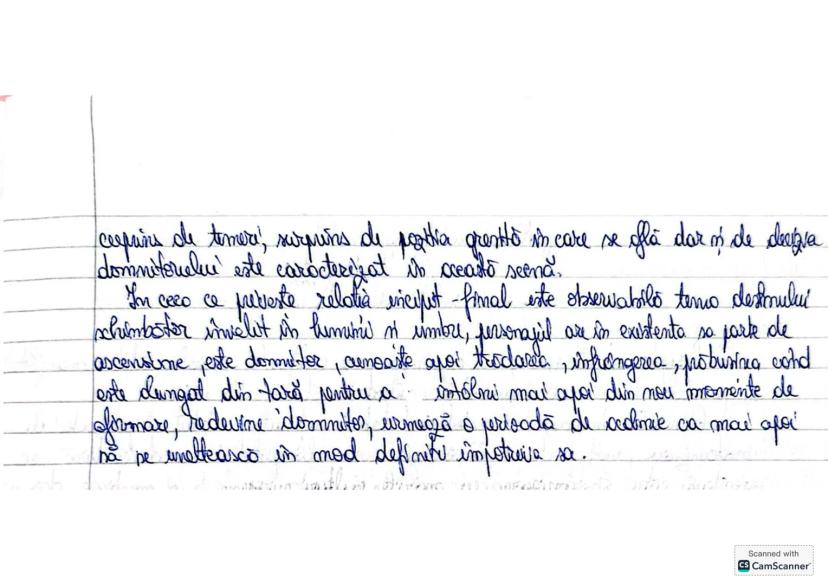 cuprins de temeri, surprins de poziția greșită în care se află dar și de decizia
domnitorului este caracterizat în această scenă.
În ceea ce privește relația incipit-final este observabilă tema destinului
schimbător învelit în lumini și umbre, personajul are în existența sa parte de
ascensiune, este domnitor, cunoaște apoi trădarea, înfrângerea, prăbușirea când
este alungat din țară pentru a întâlni mai apoi din nou momente de
afirmare, redevine domnitor, urmează o perioadă de ca mai apoi
să se uneltească în mod definitiv împotriva sa.
Scanned with
CS CamScanner